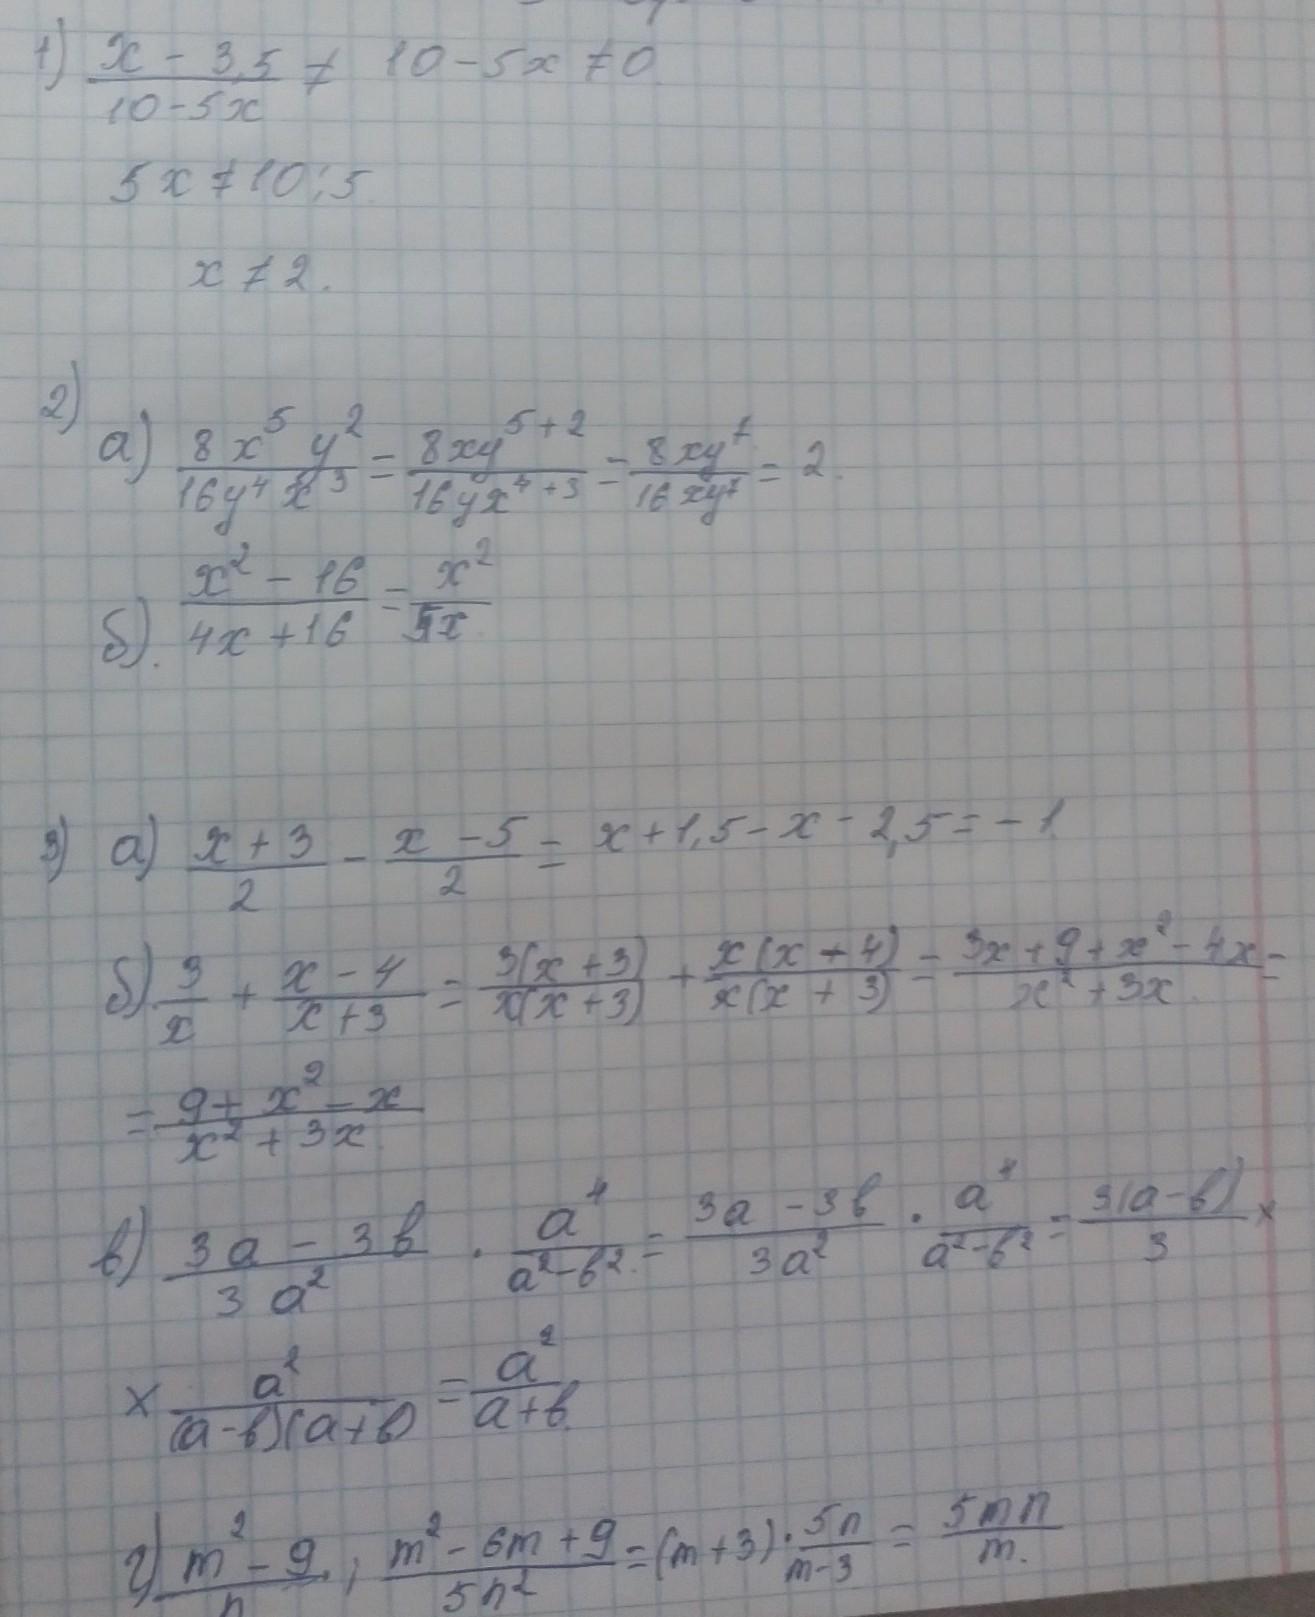 1) (x - 3,5)/(10-5x) ≠ 10-5x ≠ 0
5x ≠ 10:5
x ≠ 2.
2)
а) (8x^5 y^2)/(16y^4 x^3) = (8xy^(5+2))/(16yx^(4+3)) = (8xy^7)/(16xy^7) = 2.
б). (x^2 - 16)/(4x + 16) = x^2/5x
3) а) (x + 3)/2 - (x - 5)/2 = x + 1,5 - x - 2,5 = -1
б) 3/x + (x - 4)/(x + 3) = 3(x + 3)/x(x + 3) + x(x + 4)/x(x + 3) = (3x + 9 + x^2 - 4x)/(x^2 + 3x) =
= (9 + x^2 - x)/(x^2 + 3x)
в) (3a - 3b)/(3a^2) · a^4/(a^2-b^2) = (3a - 3b)/(3a^2) · a^4/(a^2-b^2) = 3(a-b)/3 ×
× a^2/((a-b)(a+b)) = a^2/(a+b)
г) (m^2 - 9)/n : (m^2 - 6m + 9)/(5n^2) = (m+3) · 5n/(m-3) = 5mn/m.